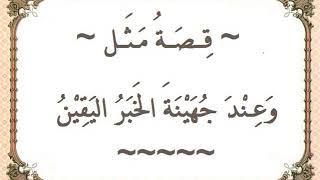 ~ قِصَةُ مَثَل ~
وَعِنْدَ جُهَيْنَةَ الْخَبَرُ الْيَقِيْنُ
~~~~~